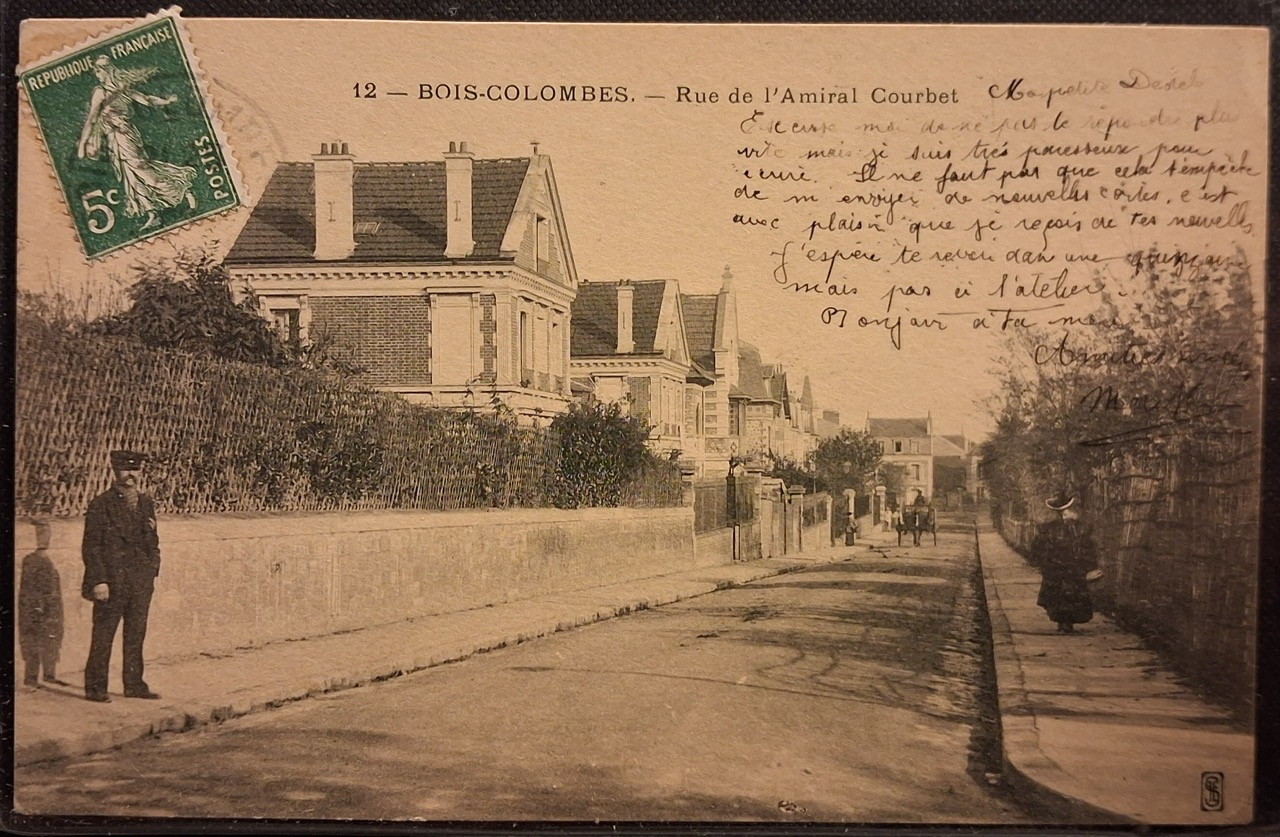 REPUBLIQUE FRANÇAISE
5c
POSTES
12 — BOIS-COLOMBES. — Rue de l'Amiral Courbet
Ma petite
Excuse moi de ne pas te répondre plus
vite mais je suis très paresseux pour
écrire. Il ne faut pas que cela t'empèche
de m envoyer de nouvelles cartes. c est
avec plaisir que je reçois de tes nouvelles
J'espère te revoir dan une quinzaine
mais pas à l'atelier.
Bonjour à ta mère